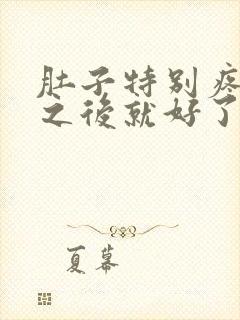 肚子特别疼
之後就好了
夏幕